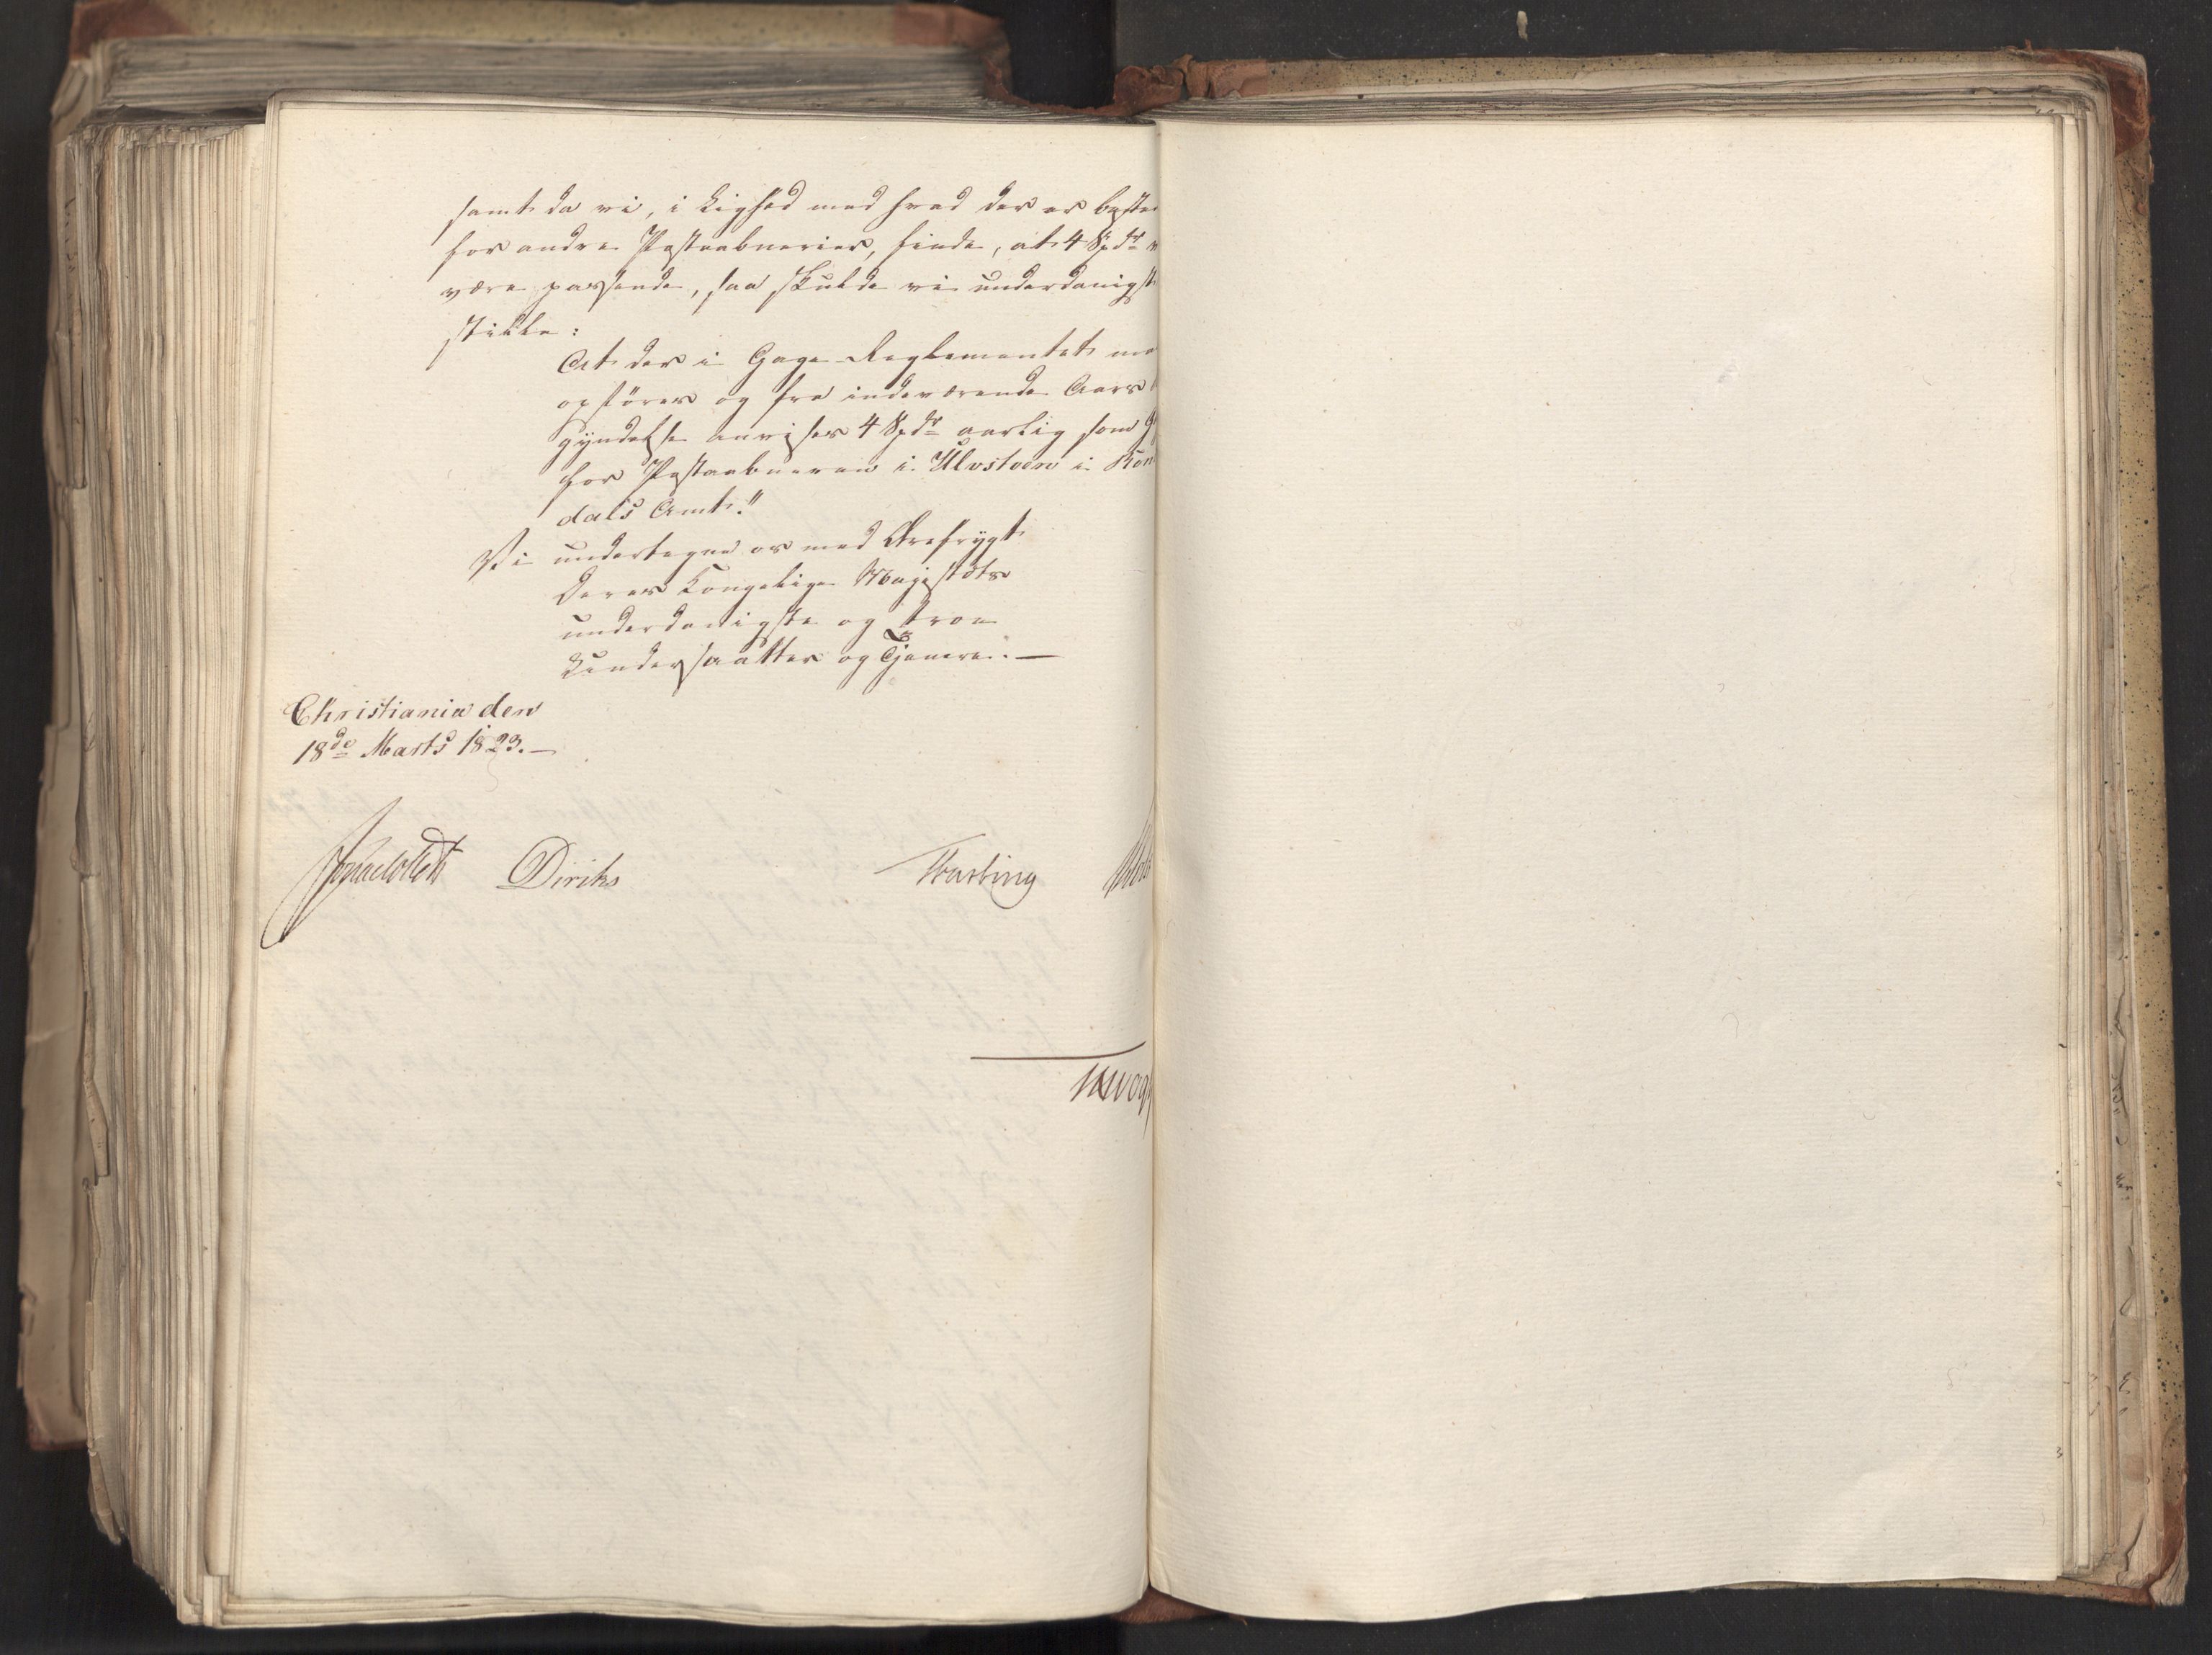 samt da vi, i Lighed med hvad der er beste
for andre Postaabnerier, finde, at 4 Spdr
være passende, saa skulde vi underdanigst
stille:
At der i Gage-Reglementet maa
opføres og fra indeværende Aars
gyndelse anvises 4 Spdr aarlig som G
for Postaabneren i Ulvstoen i Rom
dals Amt."
Vi undertegne os med Ærefrygt
Deres Kongelige Majestæts
underdanigste og troe
Undersaatter og Tjenere. —
Christiania den
18de Marts 1823. —
Diriks